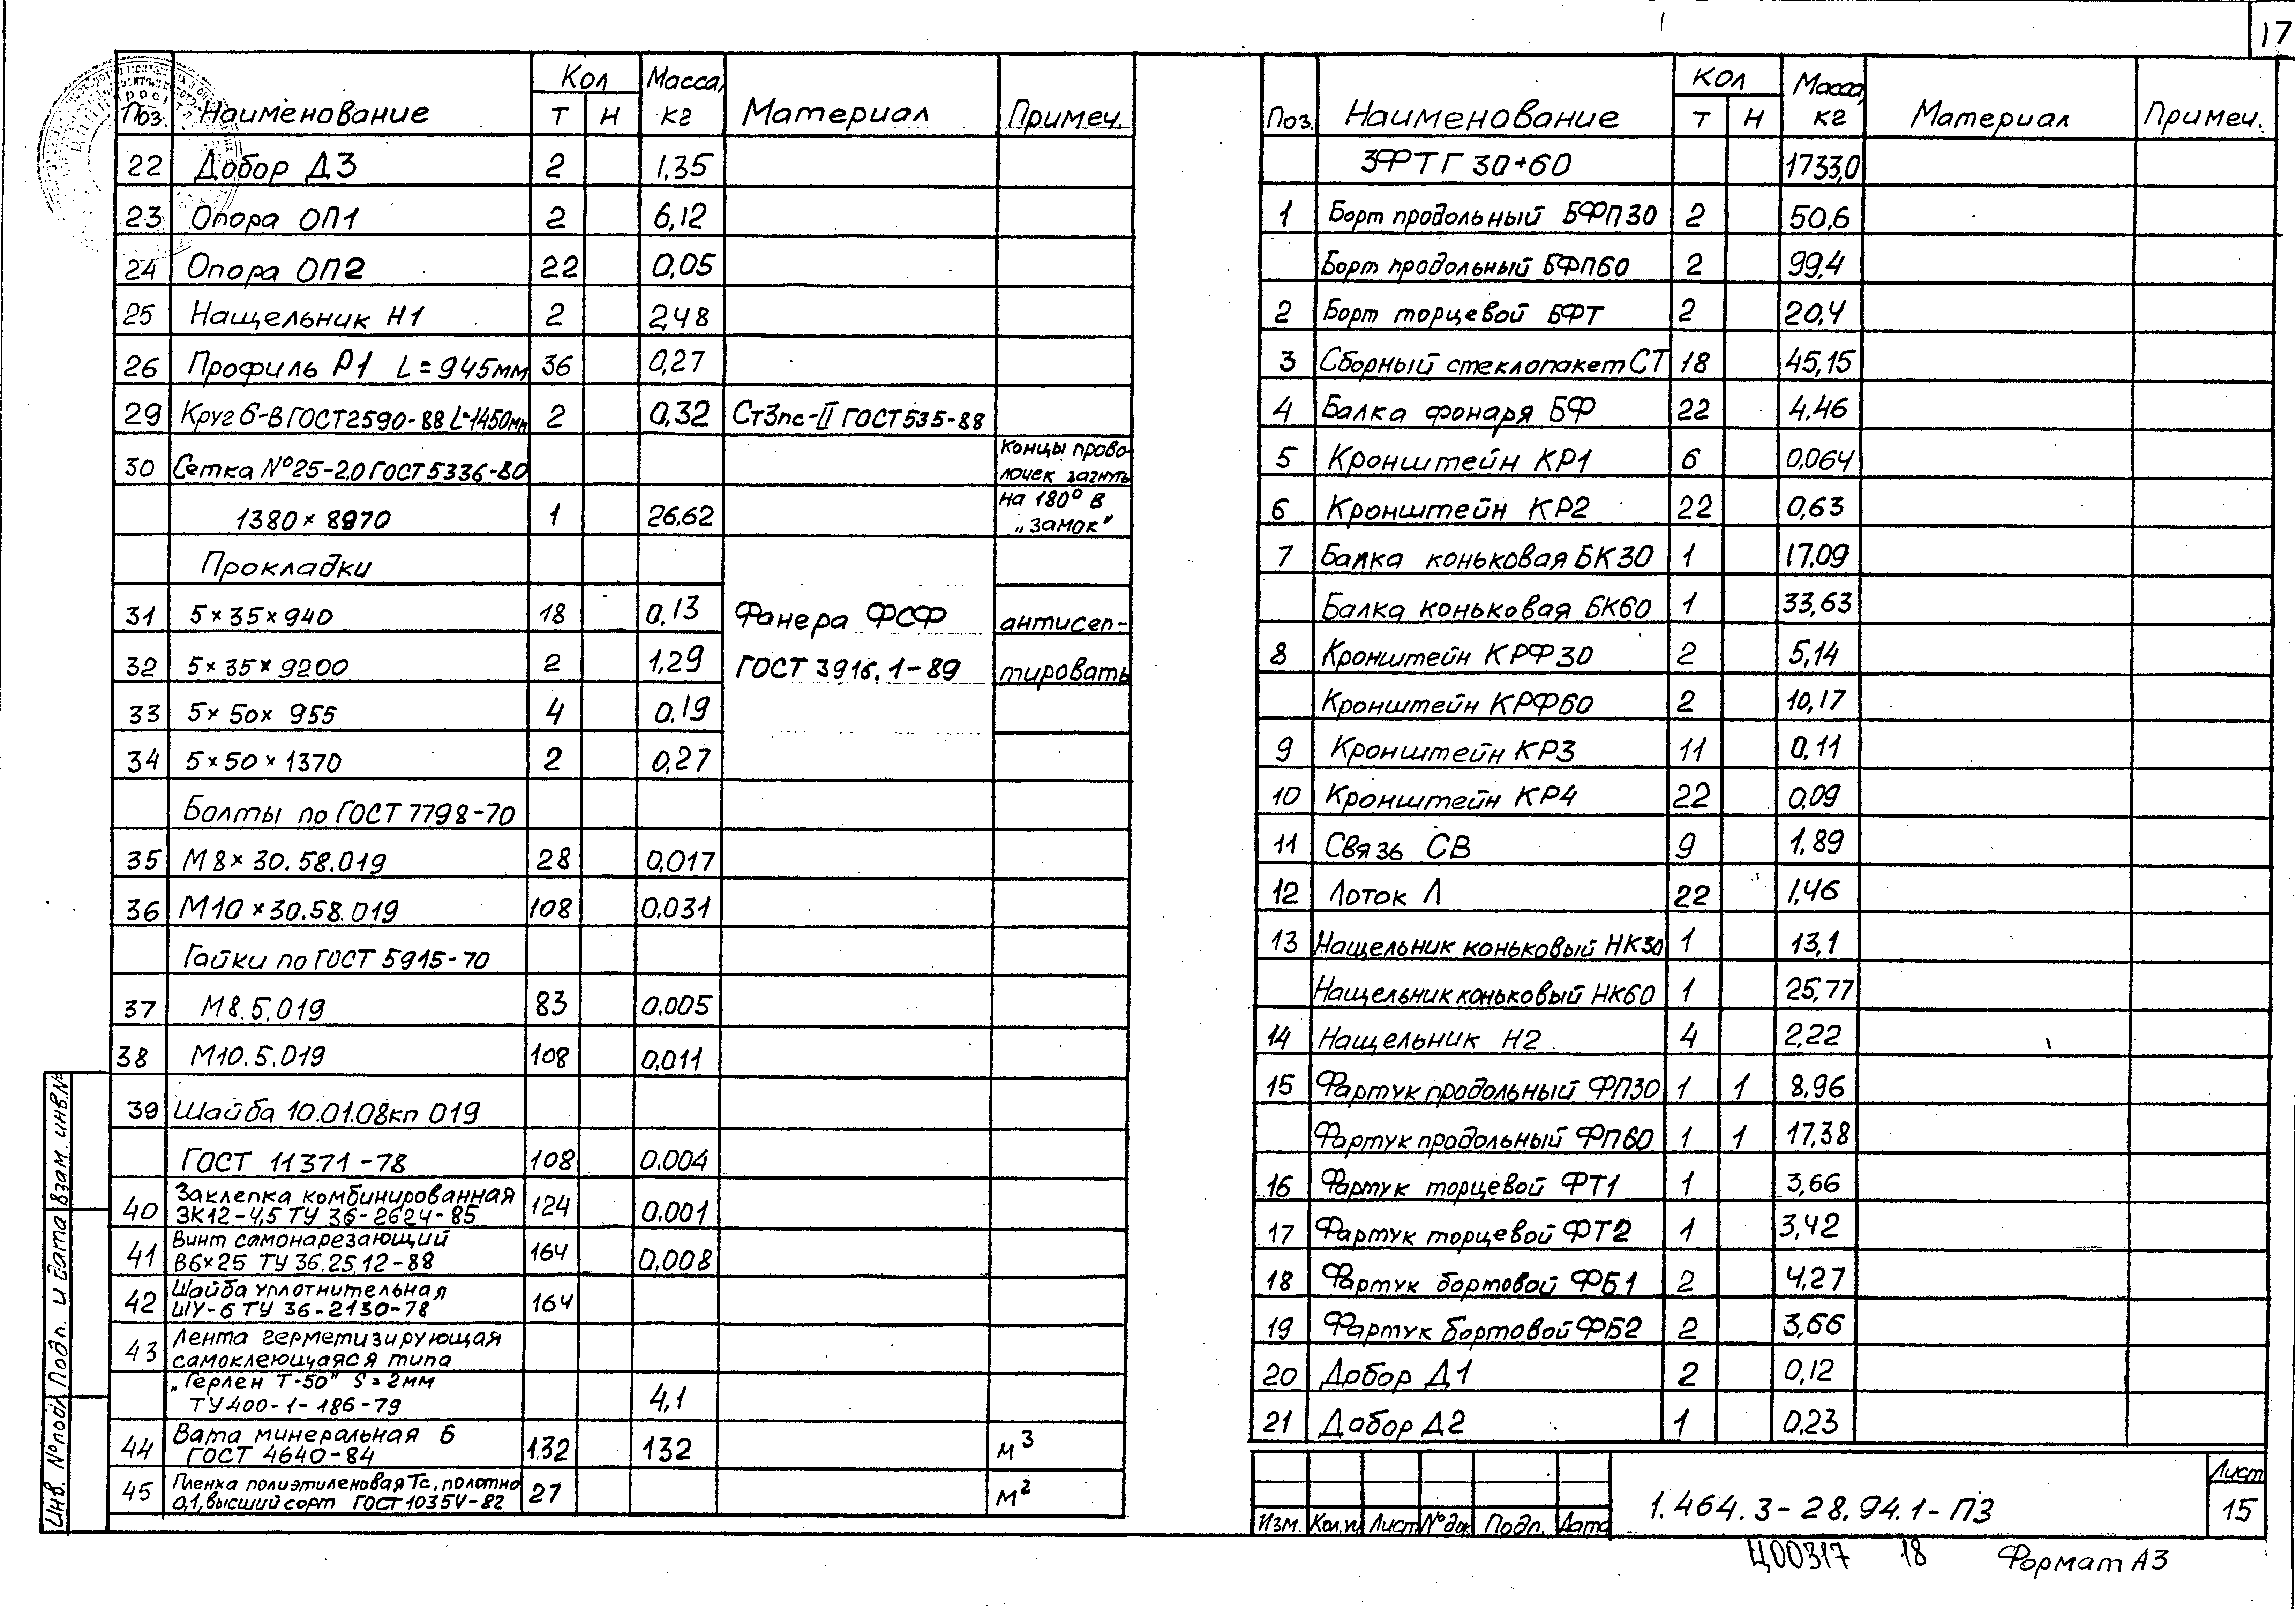 17
Поз. Наименование Кол Т Н Масса, кг Материал Примеч.
22 Добор Д3 2 1,35
23 Опора ОП1 2 6,12
24 Опора ОП2 22 0,05
25 Нащельник Н1 2 2,48
26 Профиль Р1 L=945мм 36 0,27
29 Круг 6-В ГОСТ 2590-88 L=1450мм 2 0,32 Ст3пс-II ГОСТ 535-88
30 Сетка №25-2,0 ГОСТ 5336-80 Концы прово-
лочек загнуть
1380×8970 1 26,62 на 180° в
„замок"
Прокладки
31 5×35×940 18 0,13 Фанера ФСФ антисеп-
32 5×35×9200 2 1,29 ГОСТ 3916.1-89 тировать
33 5×50×955 4 0,19
34 5×50×1370 2 0,27
Болты по ГОСТ 7798-70
35 М8×30.58.019 28 0,017
36 М10×30.58.019 108 0,031
Гайки по ГОСТ 5915-70
37 М8.5.019 83 0,005
38 М10.5.019 108 0,011
39 Шайба 10.01.08кп 019
ГОСТ 11371-78 108 0,004
40 Заклепка комбинированная
ЗК12-4,5 ТУ 36-2624-85 124 0,001
41 Винт самонарезающий
В6×25 ТУ 36.25.12-88 164 0,008
42 Шайба уплотнительная
ШУ-6 ТУ 36-2130-78 164
43 Лента герметизирующая
самоклеющаяся типа
„Герлен Т-50" S=2мм
ТУ 400-1-186-79 4,1
44 Вата минеральная Б
ГОСТ 4640-84 1.32 132 м³
45 Пленка полиэтиленовая Тс, полотно
0,1, высший сорт ГОСТ 10354-82 27 м²
Поз. Наименование Кол Т Н Масса, кг Материал Примеч.
ЗФТГ 30+60 1733,0
1 Борт продольный БФП30 2 50,6
Борт продольный БФП60 2 99,4
2 Борт торцевой БФТ 2 20,4
3 Сборный стеклопакет СТ 18 45,15
4 Балка фонаря БФ 22 4,46
5 Кронштейн КР1 6 0,064
6 Кронштейн КР2 22 0,63
7 Балка коньковая БК30 1 17,09
Балка коньковая БК60 1 33,63
8 Кронштейн КРФ30 2 5,14
Кронштейн КРФ60 2 10,17
9 Кронштейн КР3 11 0,11
10 Кронштейн КР4 22 0,09
11 Связь СВ 9 1,89
12 Лоток Л 22 1,46
13 Нащельник коньковый НК30 1 13,1
Нащельник коньковый НК60 1 25,77
14 Нащельник Н2 4 2,22
15 Фартук продольный ФП30 1 1 8,96
Фартук продольный ФП60 1 1 17,38
16 Фартук торцевой ФТ1 1 3,66
17 Фартук торцевой ФТ2 1 3,42
18 Фартук бортовой ФБ1 2 4,27
19 Фартук бортовой ФБ2 2 3,66
20 Добор Д1 2 0,12
21 Добор Д2 1 0,23
Инв. №подл Подп. и дата Взам. инв.№
Изм. Кол.уч Лист №док Подп. Дата
1.464.3-28.94.1-ПЗ
Лист
15
Ц00317 18 Формат А3